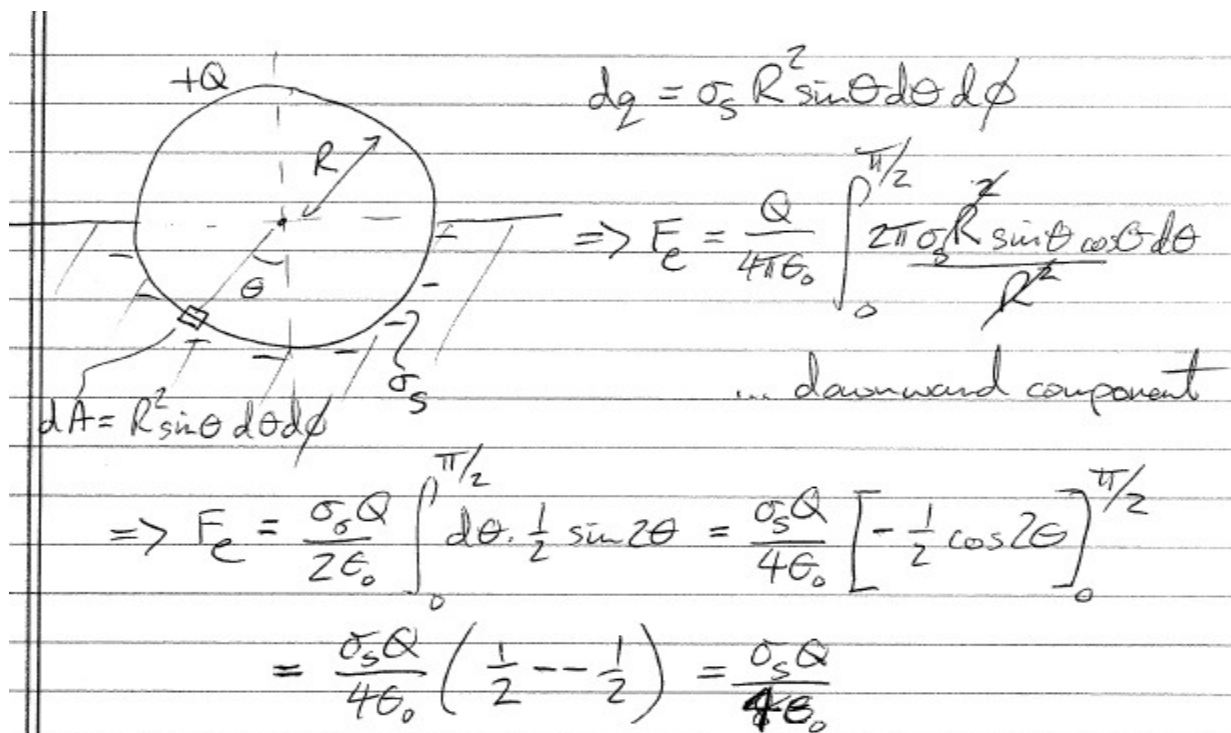 +Q
R
θ
σ_s
dA = R² sinθ dθ dϕ
dq = σ_s R² sinθ dθ dϕ
=> F_e = Q/(4πϵ₀) ∫₀^{π/2} 2πσ_s R² sinθ cosθ dθ / R²
... downward component
=> F_e = σ_σ Q/(2ϵ₀) ∫₀^{π/2} dθ · 1/2 sin2θ = σ_s Q/(4ϵ₀) [-1/2 cos2θ]₀^{π/2}
= σ_s Q/(4ϵ₀) (1/2 -- 1/2) = σ_s Q/(4ϵ₀)